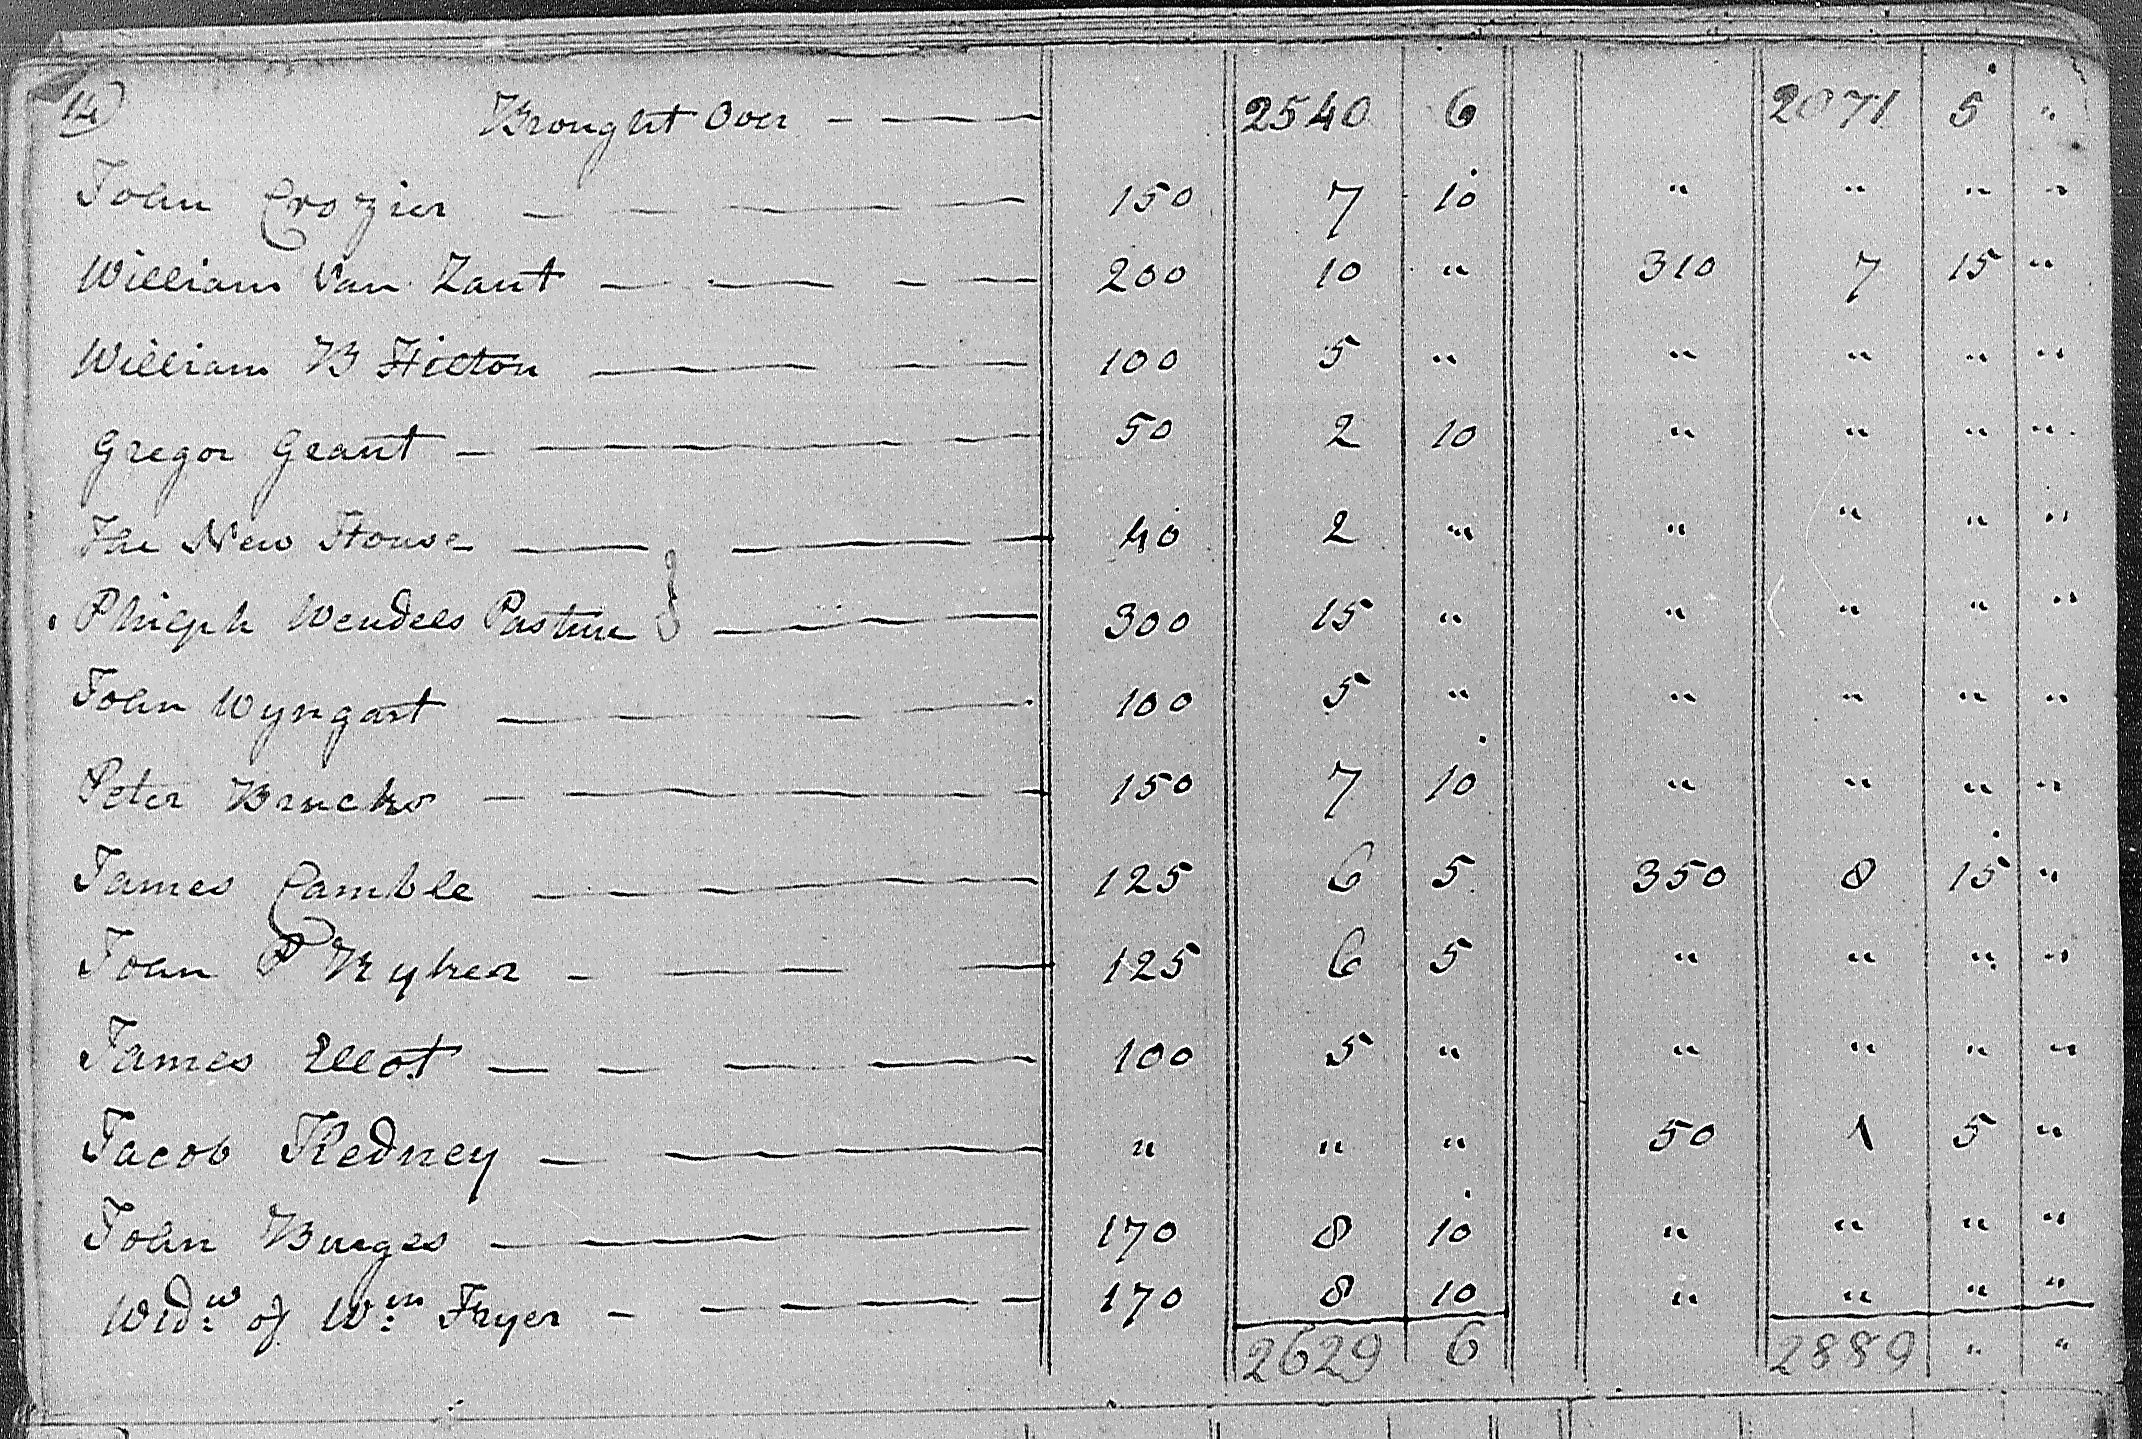 14
Brought Over — — — 2540 6 2071 5 "
John Crozier — — — 150 7 10 " " " "
William Van Zant — — — 200 10 " 310 7 15 "
William B Hilton — — — 100 5 " " " " "
Gregor Grant — — — 50 2 10 " " " "
The New House — — — 40 2 " " " " "
Philip Wendels Pasture } — — 300 15 " " " " "
John Wyngart — — — 100 5 " " " " "
Peter Brucks — — — 150 7 10 " " " "
James Camble — — — 125 6 5 350 8 15 "
John P Kyker — — — 125 6 5 " " " "
James Ellot — — — 100 5 " " " " "
Jacob Kedney — — — " " " 50 1 5 "
John Burges — — — 170 8 10 " " " "
Widw of Wm Fryer — — — 170 8 10 " " " "
2629 6 2889 " "